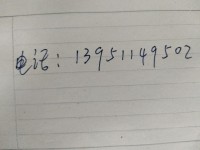 电话：13951149502